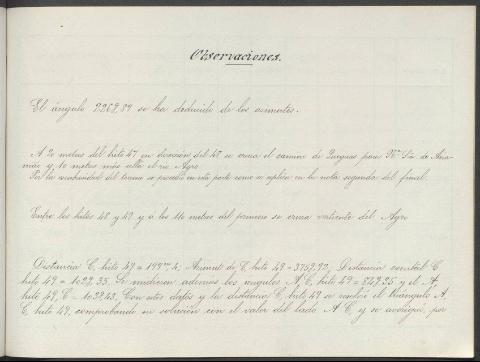 Observaciones.
El ángulo 226g,89 se ha deducido de los azimutes.
A 20 metros del hito 47 en dirección del 48 se cruza el camino de para Nª Sra. de
y 10 metros más allá el río Agro
Por la escabrosidad del terreno se procedió en esta parte como se esplica en la nota segunda del final.
Entre los hitos 48 y 49 y á los 110 metros del primero se cruza vertiente del Agro
Distancia C, hito 49 = 199m,4, Azimut de C, hito 49 = 375g,92, Distancia cenital C
hito 49 = 102g,35. Se midieron además los ángulos A C, hito 49 = 84g,25 y el A,
hito 49, C = 103g,43. Con estos datos y la distancia C, hito 49 se resolvió el triángulo A,
C, hito 49, comprobando su solución con el valor del lado A C y se averiguó, por